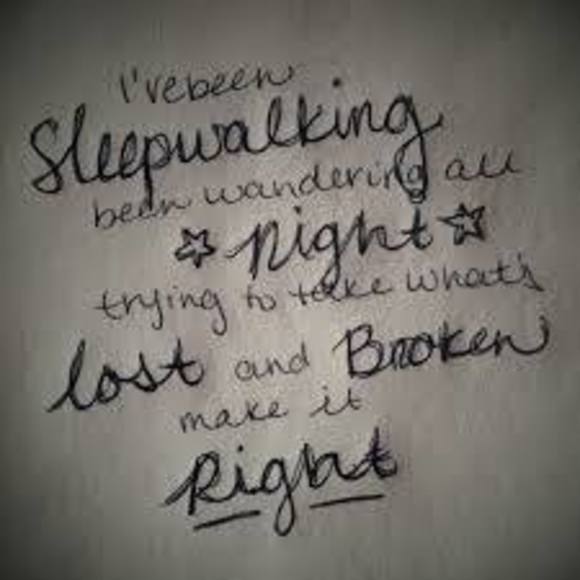 I'vebeen
Sleepwalking
been wandering all
night
trying to take what's
lost and Broken
make it
Right